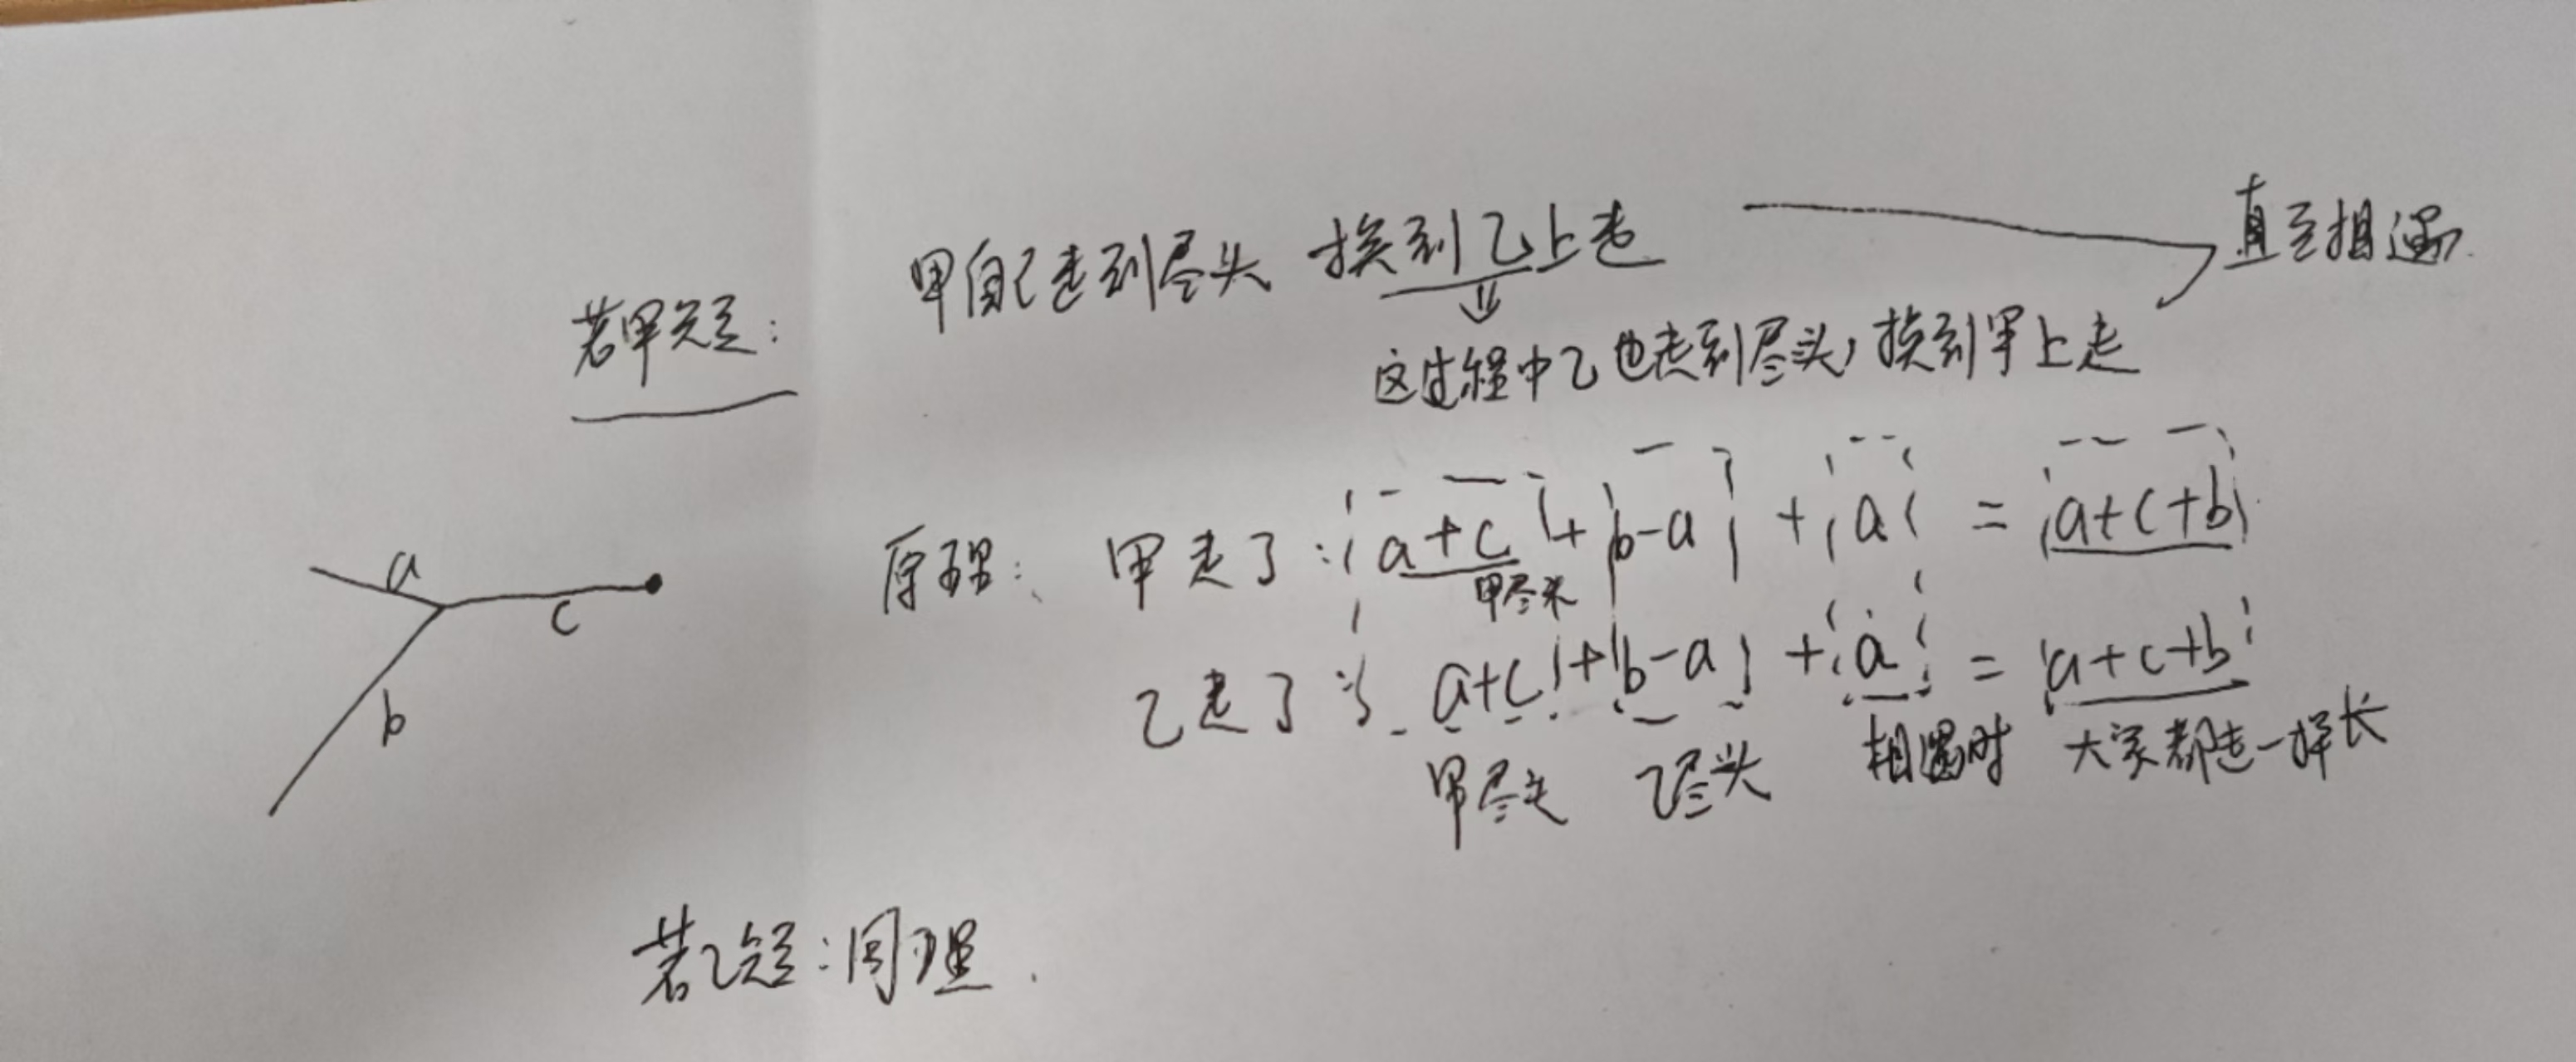 甲自己走到尽头 换到乙上走 直至相遇
若甲短:
⇓
这过程中乙也走到尽头,换到甲上走
原理: 甲走了: a+c + b-a + a = a+c+b
甲尽头
乙走了: a+c + b-a + a = a+c+b
甲尽头 乙尽头 相遇时 大家都走一样长
a
c
b
若乙短:同理.